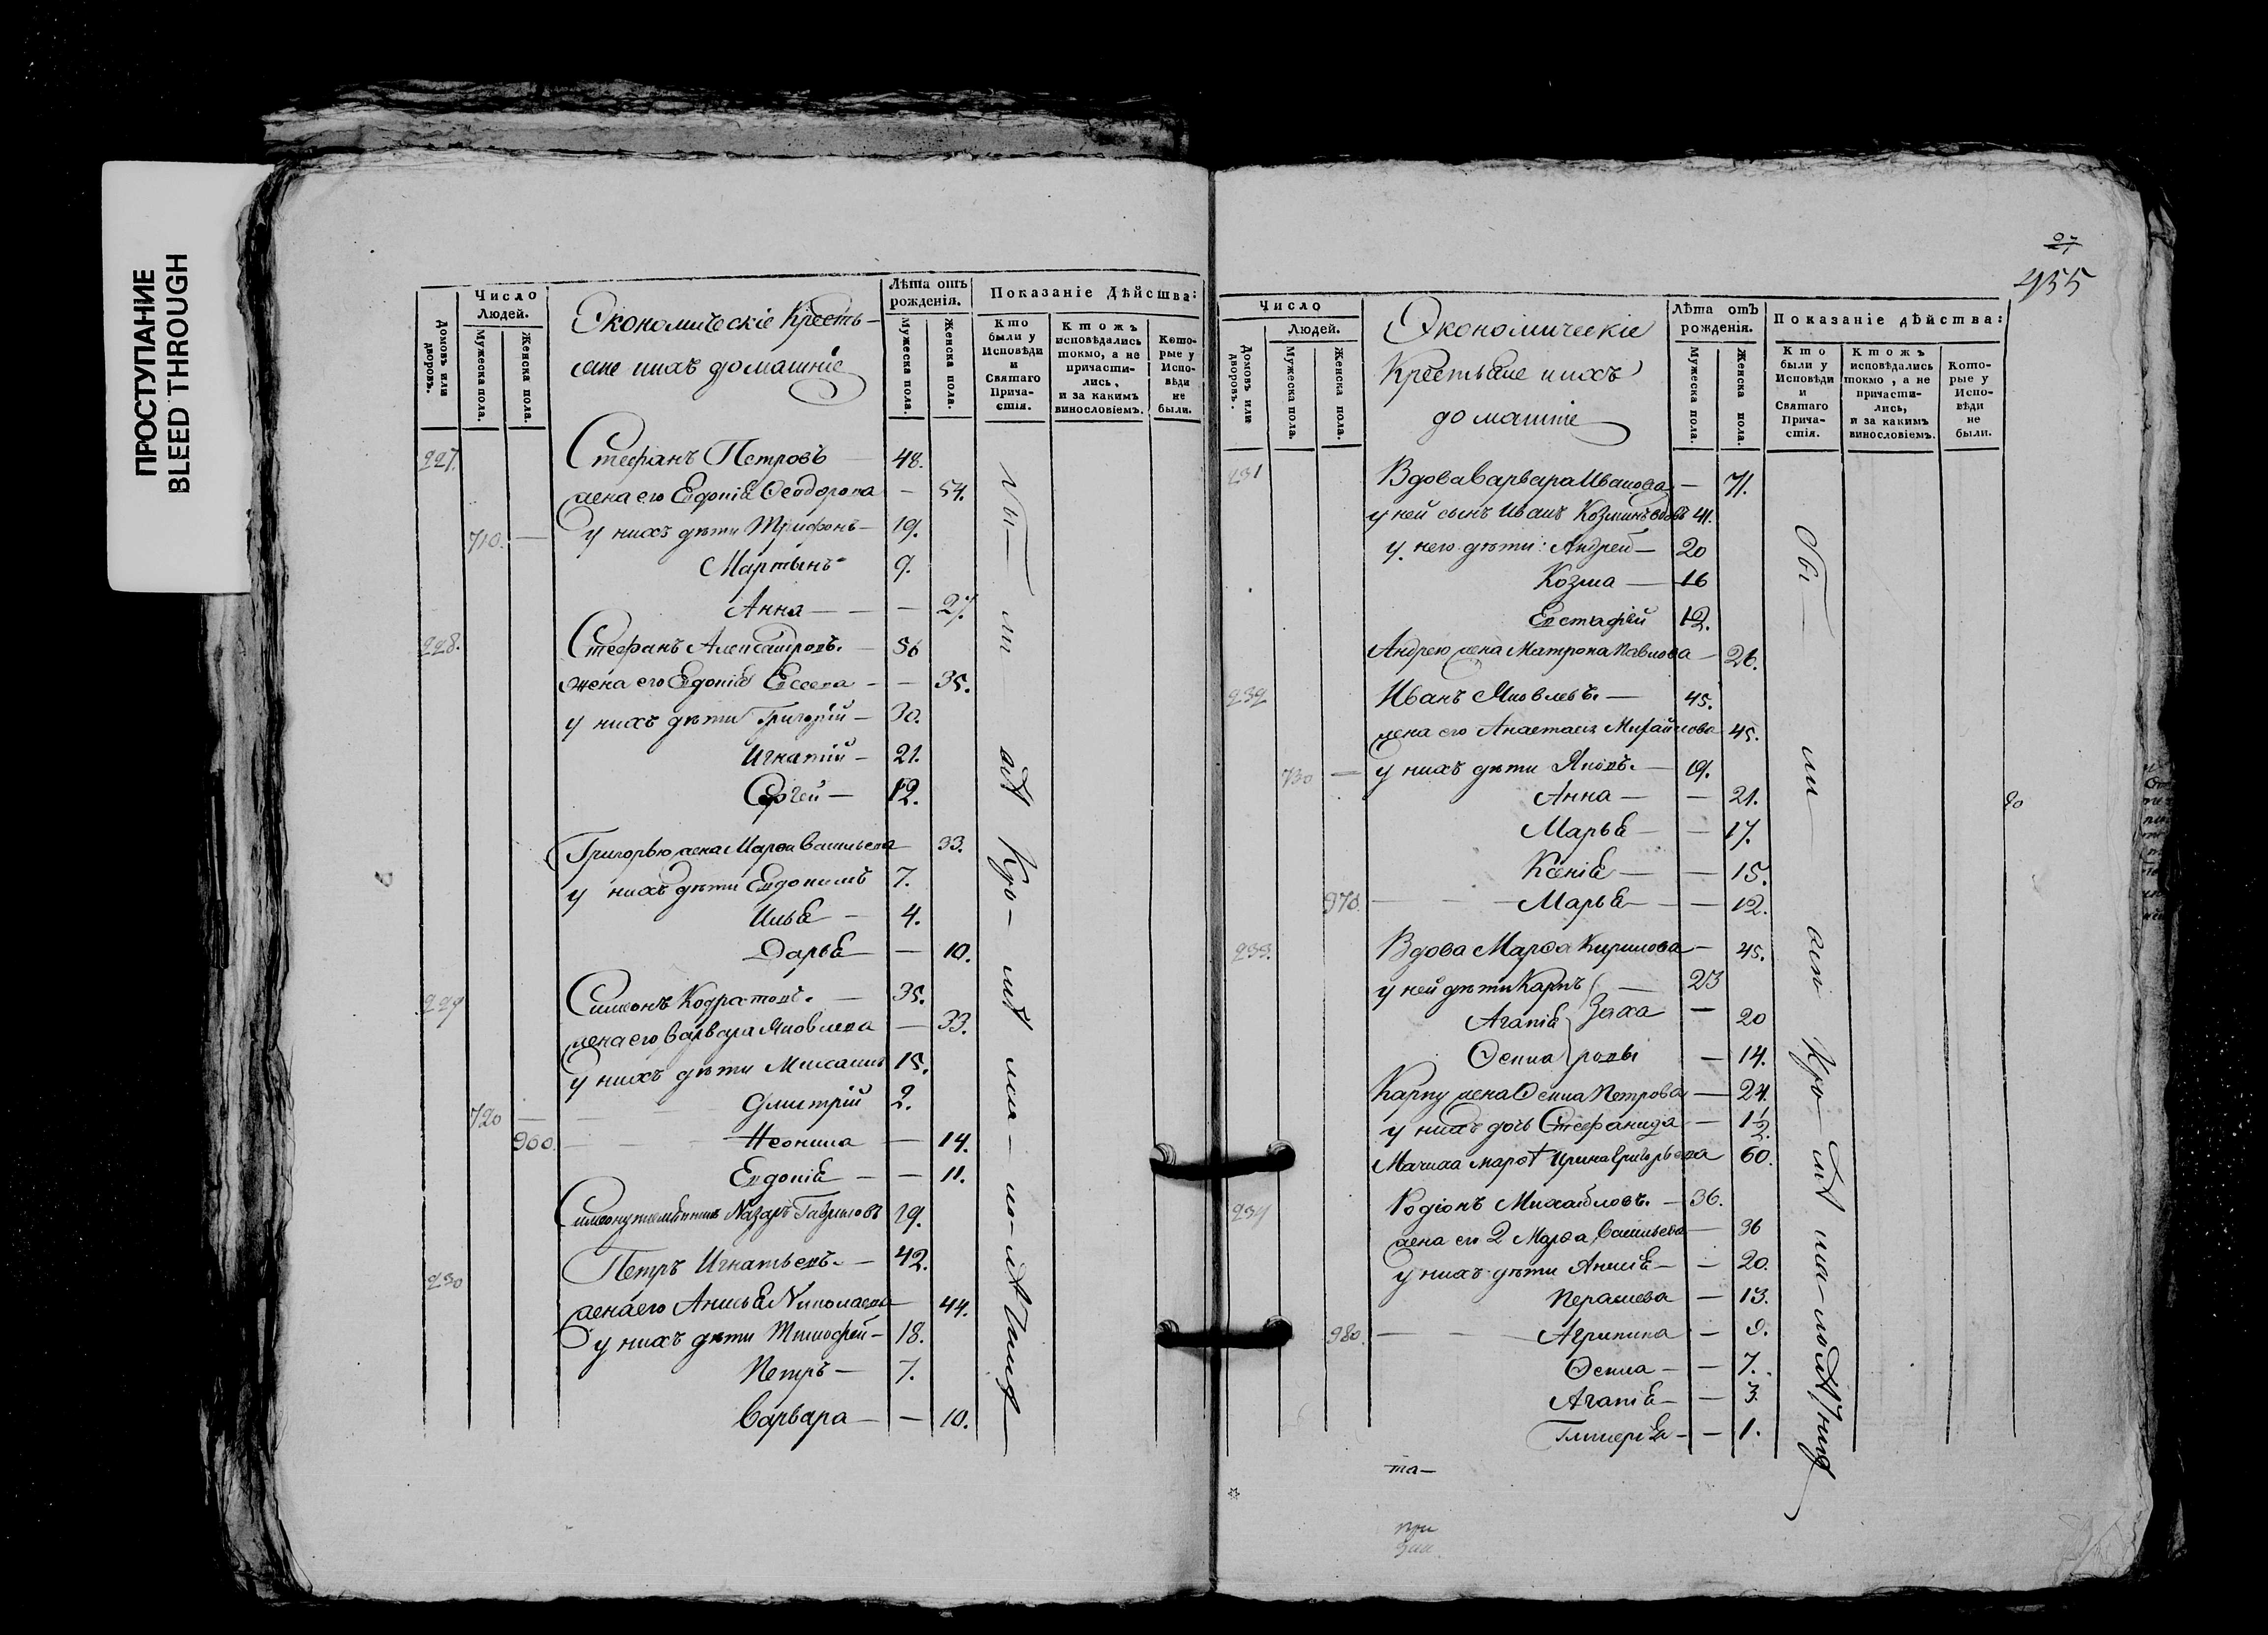 ПРОСТУПАНИЕ
BLEED THROUGH
Домовъ или дворовъ.
Число Людей.
Мужеска пола.
Женска пола.
Экономическіе Кресть-
яне ихъ домашніе
Лѣта отъ рожденія.
Мужеска пола.
Женска пола.
Показаніе Дѣйства:
Кто были у Исповѣди и Святаго Прича-стія.
Ктожъ исповѣдались токмо, а не причасти-лись, и за какимъ винословіемъ.
Кото-рые у Испо-вѣди не были.
227. Стефанъ Петровъ — 48.
жена его Евдокія Ѳеодорова — 54.
710. — у нихъ дѣти Трифонъ — 19.
Мартынъ 9.
Анна — — — 27.
228. Стефанъ Александровъ. — 56
жена его Евдокія Евсеева — — 35.
у нихъ дѣти Григорій — 30.
Игнатій — 21.
Сергей — 12.
Григорью жена Марѳа Васильева 33.
у нихъ дѣти Евдокимъ 7.
Илья — 4.
Дарья — 10.
229 Симеонъ Кодратовъ. — 35.
жена его Варвара Яковлева — 33.
у нихъ дѣти Михаилъ 15.
720 — Димитрій 2.
960. — Неонила — 14.
Евдокія — — 11.
Назаръ Гавриловъ 29.
230 Петръ Игнатьевъ. — 42.
жена его Анисья Николаева 44.
у нихъ дѣти Тимофей — 18.
Петръ — 7.
Варвара — — 10.
27
455
Домовъ или дворовъ.
Число Людей.
Мужеска пола.
Женска пола.
Экономическіе
Крестьяне ихъ
домашніе
Лѣта отъ рожденія.
Мужеска пола.
Женска пола.
Показаніе дѣйства:
Кто были у Исповѣди и Святаго Прича-стія.
Ктожъ исповѣдались токмо, а не причасти-лись, и за какимъ винословіемъ.
Кото-рые у Испо-вѣди не были.
231 Вдова Варвара Иванова — 71.
у ней сынъ Иванъ Козминъ вдовъ 41.
у него дѣти: Андрей — 20
Козма — 16
Евстафей 12.
Андрею жена Матрона Павлова — 26.
232 Иванъ Яковлевъ. — 45.
жена его Анастасія Михайлова 45.
730 — у нихъ дѣти Яковъ. — 19.
Анна — — 21.
Марья — — 17.
Ксенія — — 15.
970. — Марья — — 12.
233. Вдова Марѳа Кирилова — 45.
у ней дѣти Карпъ — 23
Агапія Заха — 20
Ѳекла ровы — 14.
Карпу жена Ѳекла Петрова — 24.
у нихъ дочь Стефанида — 1 1/2.
Мачиха Ирина Григорьева 60.
234 Родіонъ Михайловъ. — 36.
жена его 2 Марѳа Васильева — 36
у нихъ дѣти — 20.
— 13.
980. — Агрипина — 9.
Ѳекла — — 7.
Агапія — — 3.
Гликерія — — 1.
та —